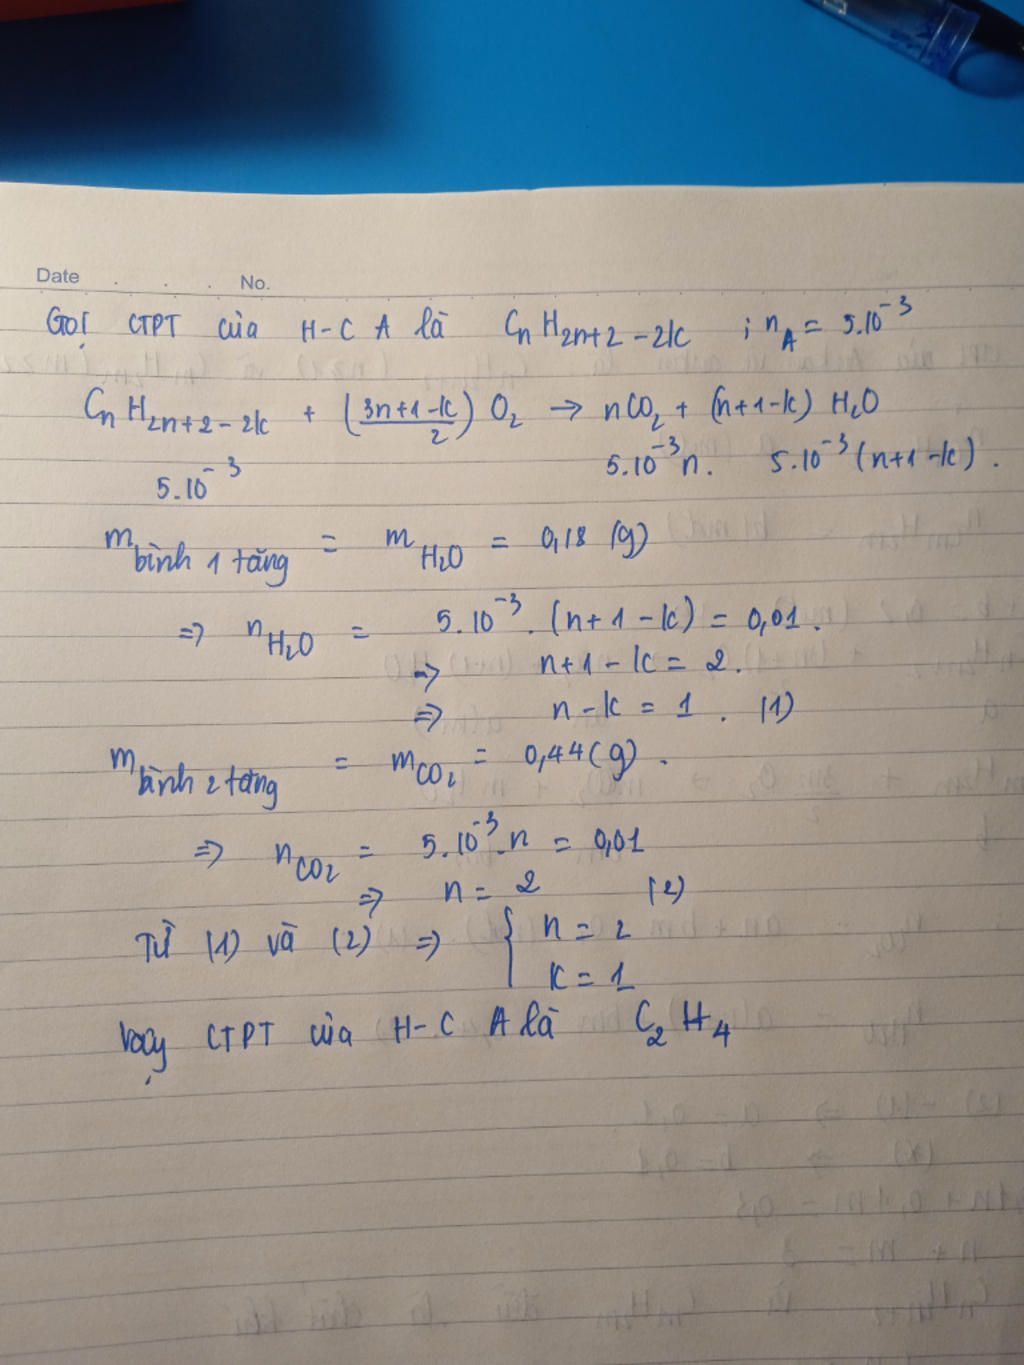 Date . . . No.
Gọi CTPT của H-C A là CnH2n+2-2k ; nA = 5.10^-3
CnH2n+2-2k + (3n+1-k/2) O2 → nCO2 + (n+1-k) H2O
5.10^-3 5.10^-3n. 5.10^-3(n+1-k).
m bình 1 tăng = mH2O = 0,18 (g)
⇒ nH2O = 5.10^-3.(n+1-k) = 0,01.
⇒ n+1-k = 2.
⇒ n-k = 1. (1)
m bình 2 tăng = mCO2 = 0,44(g).
⇒ nCO2 = 5.10^-3.n = 0,01
⇒ n = 2 (2)
Từ (1) và (2) ⇒ { n = 2
k = 1
Vậy CTPT của H-C A là C2H4